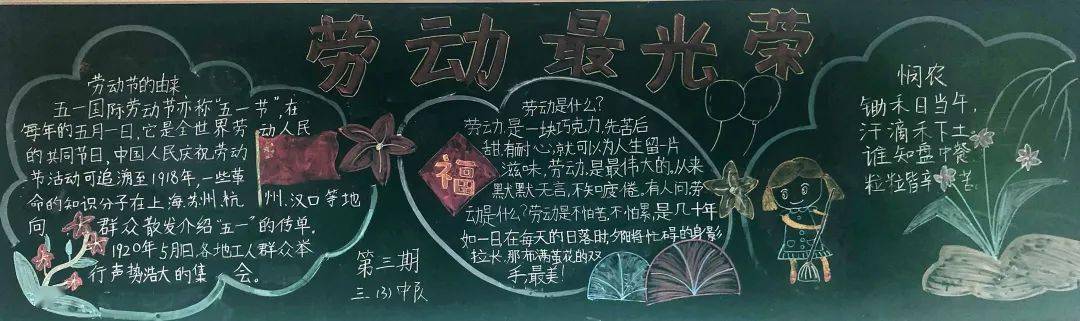 劳动最光荣
劳动节的由来
五一国际劳动节亦称"五一节",在
每年的五月一日,它是全世界劳动人民
的共同节日,中国人民庆祝劳动
节活动可追溯至1918年,一些革
命的知识分子在上海.苏州.杭州.汉口等地
向群众散发介绍"五一"的传单.
1920年5月1日,各地工人群众举
行声势浩大的集会。
第三期
三.(3)中队
福
劳动是什么?
劳动,是一块巧克力,先苦后
甜,有耐心,就可以为人生留一片
滋味,劳动,是最伟大的,从来
默默无言,不知疲倦.有人问劳
动是什么?劳动是不怕苦,不怕累,是几十年
如一日,在每天的日落时,夕阳将忙碌的身影
拉长,那布满茧花的双
手,最美!
悯农
锄禾日当午,
汗滴禾下土
谁知盘中餐
粒粒皆辛苦.